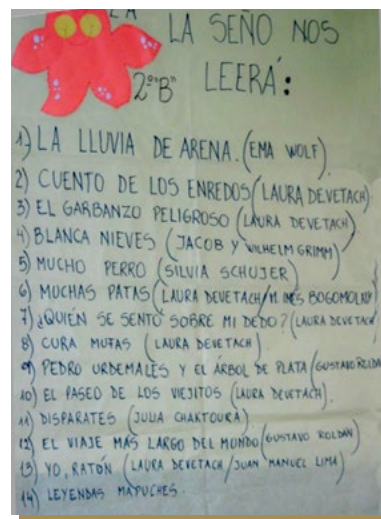 LA SEÑO NOS
2º "B" LEERÁ:
1) LA LLUVIA DE ARENA. (EMA WOLF)
2) CUENTO DE LOS ENREDOS (LAURA DEVETACH)
3) EL GARBANZO PELIGROSO (LAURA DEVETACH)
4) BLANCA NIEVES (JACOB Y WILHELM GRIMM)
5) MUCHO PERRO (SILVIA SCHUJER)
6) MUCHAS PATAS (LAURA DEVETACH/M. INÉS BOGOMOLNY)
7) ¿QUIÉN SE SENTÓ SOBRE MI DEDO? (LAURA DEVETACH
8) CURA MUFAS (LAURA DEVETACH)
9) PEDRO URDEMALES Y EL ÁRBOL DE PLATA (GUSTAVO ROLDÁN
10) EL PASEO DE LOS VIEJITOS (LAURA DEVETACH).
11) DISPARATES (JULIA CHAKTOURA)
12) EL VIAJE MÁS LARGO DEL MUNDO (GUSTAVO ROLDÁN)
13) YO, RATÓN (LAURA DEVETACH/JUAN MANUEL LIMA)
14) LEYENDAS MAPUCHES.